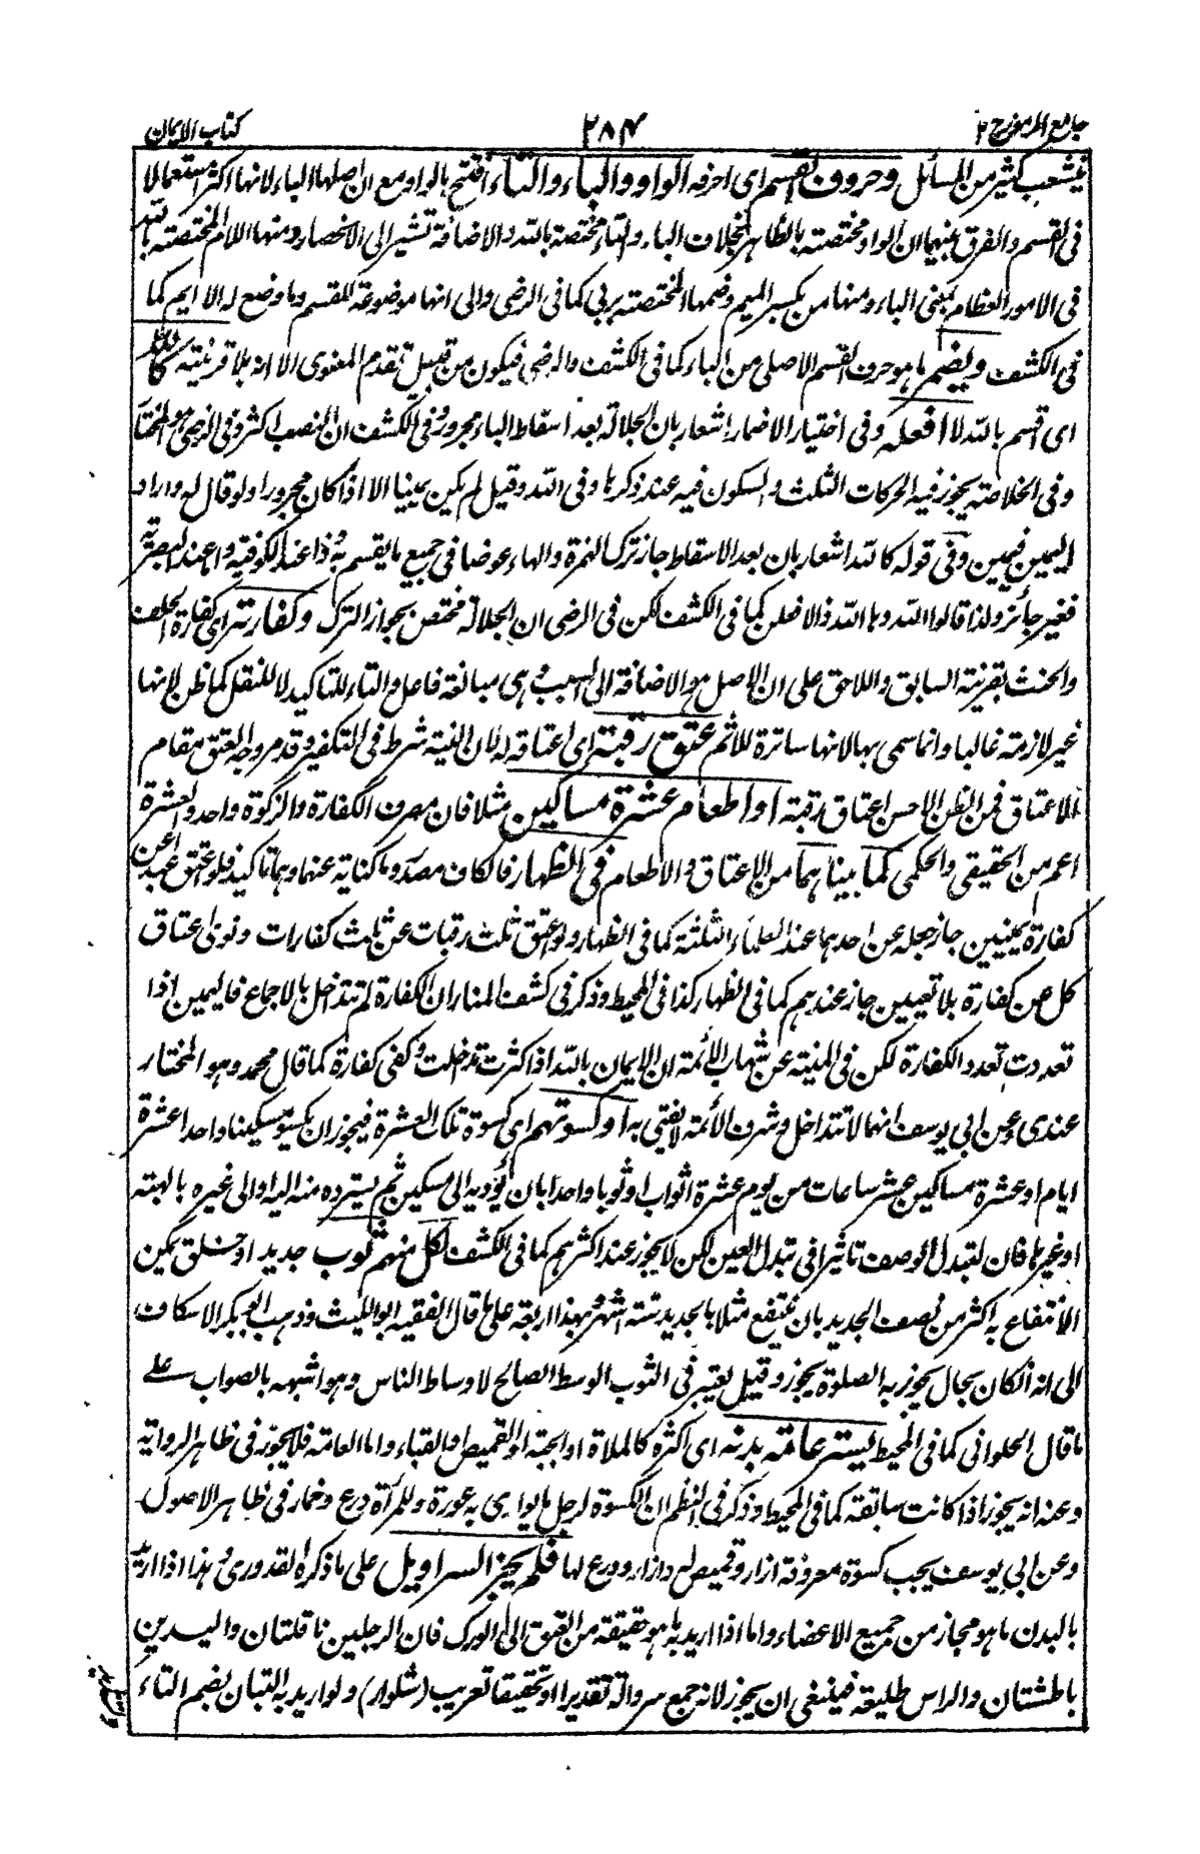 جامع الرموز ج ٢
٢٨٤
كتاب الايمان
يتشعب كثير من المسائل وحروف القسم اى احرفه الواو والباء والتاء افتتح بالواو مع ان اصلها الباء لانها اكثر استعمالا
فى القسم والفرق بينهما ان الواو مختصة بالظاهر بخلاف الباء والتاء مختصة بالله والاضافة تشير الى الانحصار ومنها اللام المختصة بالله
فى الامور العظام بمعنى الباء ومنها من بكسر الميم وضمها المختصة بربى كما فى الرضى والى انها موضوعة للقسم وما وضع له الا ايم كما
فى الكشف ويضمر ما هو حرف القسم الاصلى من الباء كما فى الكشف والرضى فيكون من قبيل تقدم المعنوى الا انه بلا قرينة كالله
اى اقسم بالله لا افعله وفى اختيار الاضمار اشعار بان الجلالة بعد اسقاط الباء مجرورة وفى الكشف ان النصب اكثر وفى الرضى هو المختار
وفى الخلاصة يجوز فيه الحركات الثلث والسكون فيه عند ذكرها وفى الله وقيل لم يكن يمينا الا اذا كان مجرورا ولو قال له واراد
اليمين فيمين وفى قوله كالله اشعار بان بعد الاسقاط جاز ترك الهمزة والهاء عوضا فى جميع ما يقسم به وذا عند الكوفية واما عند البصرية
فغير جائز ولذا قالوا الله وها الله ذا لافعلن كما فى الكشف لكن فى الرضى ان الجلالة مختص بجواز الترك وكفارته اى كفارة الحلف
والحنث بقرينة السابق واللاحق على ان الاصل هو الاضافة الى السبب وهى مبالغة فاعل والتاء للتاكيد لا للنقل كما ظن لانها
غير لازمة غالبا وانما سمى بها لانها ساترة للاثم عتق رقبة اى اعتاقه لان النية شرط فى التكفير وقد مر وجه العتق مقام
الاعتاق فمن الظن الاحسن اعتاق رقبة او اطعام عشرة مساكين مثلا فان مصرف الكفارة والزكوة واحد والعشرة
اعم من الحقيقى والحكمى كما بيناهما من الاعتاق والاطعام فى الظهار فالكاف مصدر وما كناية عنهما وهما تاكيد فلو اعتق عبدا عن
كفارة يمينين جاز جعله عن احدهما عند العلماء الثلثة كما فى الظهار ولو اعتق ثلث رقبات عن ثلث كفارات ونوى اعتاق
كل عن كفارة بلا تعيين جاز عندهم كما فى الظهار كذا فى المحيط وذكر فى كشف المنار ان الكفارة لم تتداخل بالاجماع فاليمين اذا
تعددت تعدد الكفارة لكن فى المنية عن شهاب الأئمة ان الايمان بالله اذا كثرت تداخلت وكفى كفارة كما قال محمد وهو المختار
عندى وعن ابى يوسف انهما لا تتداخل وشرف الأئمة لا يفتى به او كسوتهم اى كسوة تلك العشرة فيجوز ان يكسو مسكينا واحدا عشرة
ايام او عشرة مساكين عشر ساعات من يوم عشرة اثواب او ثوبا واحدا بان يؤديه الى مسكين ثم يسترده منه اليه او الى غيره بالهبة
او غيرها فان لتبدل الوصف تاثيرا فى تبدل العين لكن لا يجوز عند اكثرهم كما فى الكشف لكل منهم ثوب جديد او خلق يمكن
الانتفاع به اكثر من نصف الجديد بان ينتفع مثلا بالجديد ستة اشهر وبهذا اربعة على ما قال الفقيه ابو الليث وذهب ابو بكر الاسكاف
الى انه ان كان بحال يجوز به الصلوة يجوز وقيل يعتبر فى الثوب الوسط الصالح لاوساط الناس وهو اشبه بالصواب على
ما قال الحلوانى كما فى المحيط يستر عامة بدنه اى اكثره كالملاة او الجبة او القميص او القباء واما العامة فلا يجوز فى ظاهر الرواية
وعنه انه يجوز اذا كانت سابغة كما فى المحيط وذكر فى النظم ان الكسوة لرجل ما يوارى به عورة وللمرأة درع وخمار فى ظاهر الاصول
وعن ابى يوسف يجب كسوة معروفة ازار وقميص له وازار ودرع لها فلم يجز السراويل على ما ذكره القدورى وهذا اذا اريد
بالبدن ما هو مجاز من جميع الاعضاء واما اذا اريد به ما هو حقيقة من العنق الى الورك فان الرجلين ناقلتان واليدين
باطشتان والراس طليعة فينبغى ان يجوز لانه جمع سروالة تقديرا او تحقيقا تعريب (شلوار) ولو اريد به التبان بضم التاء